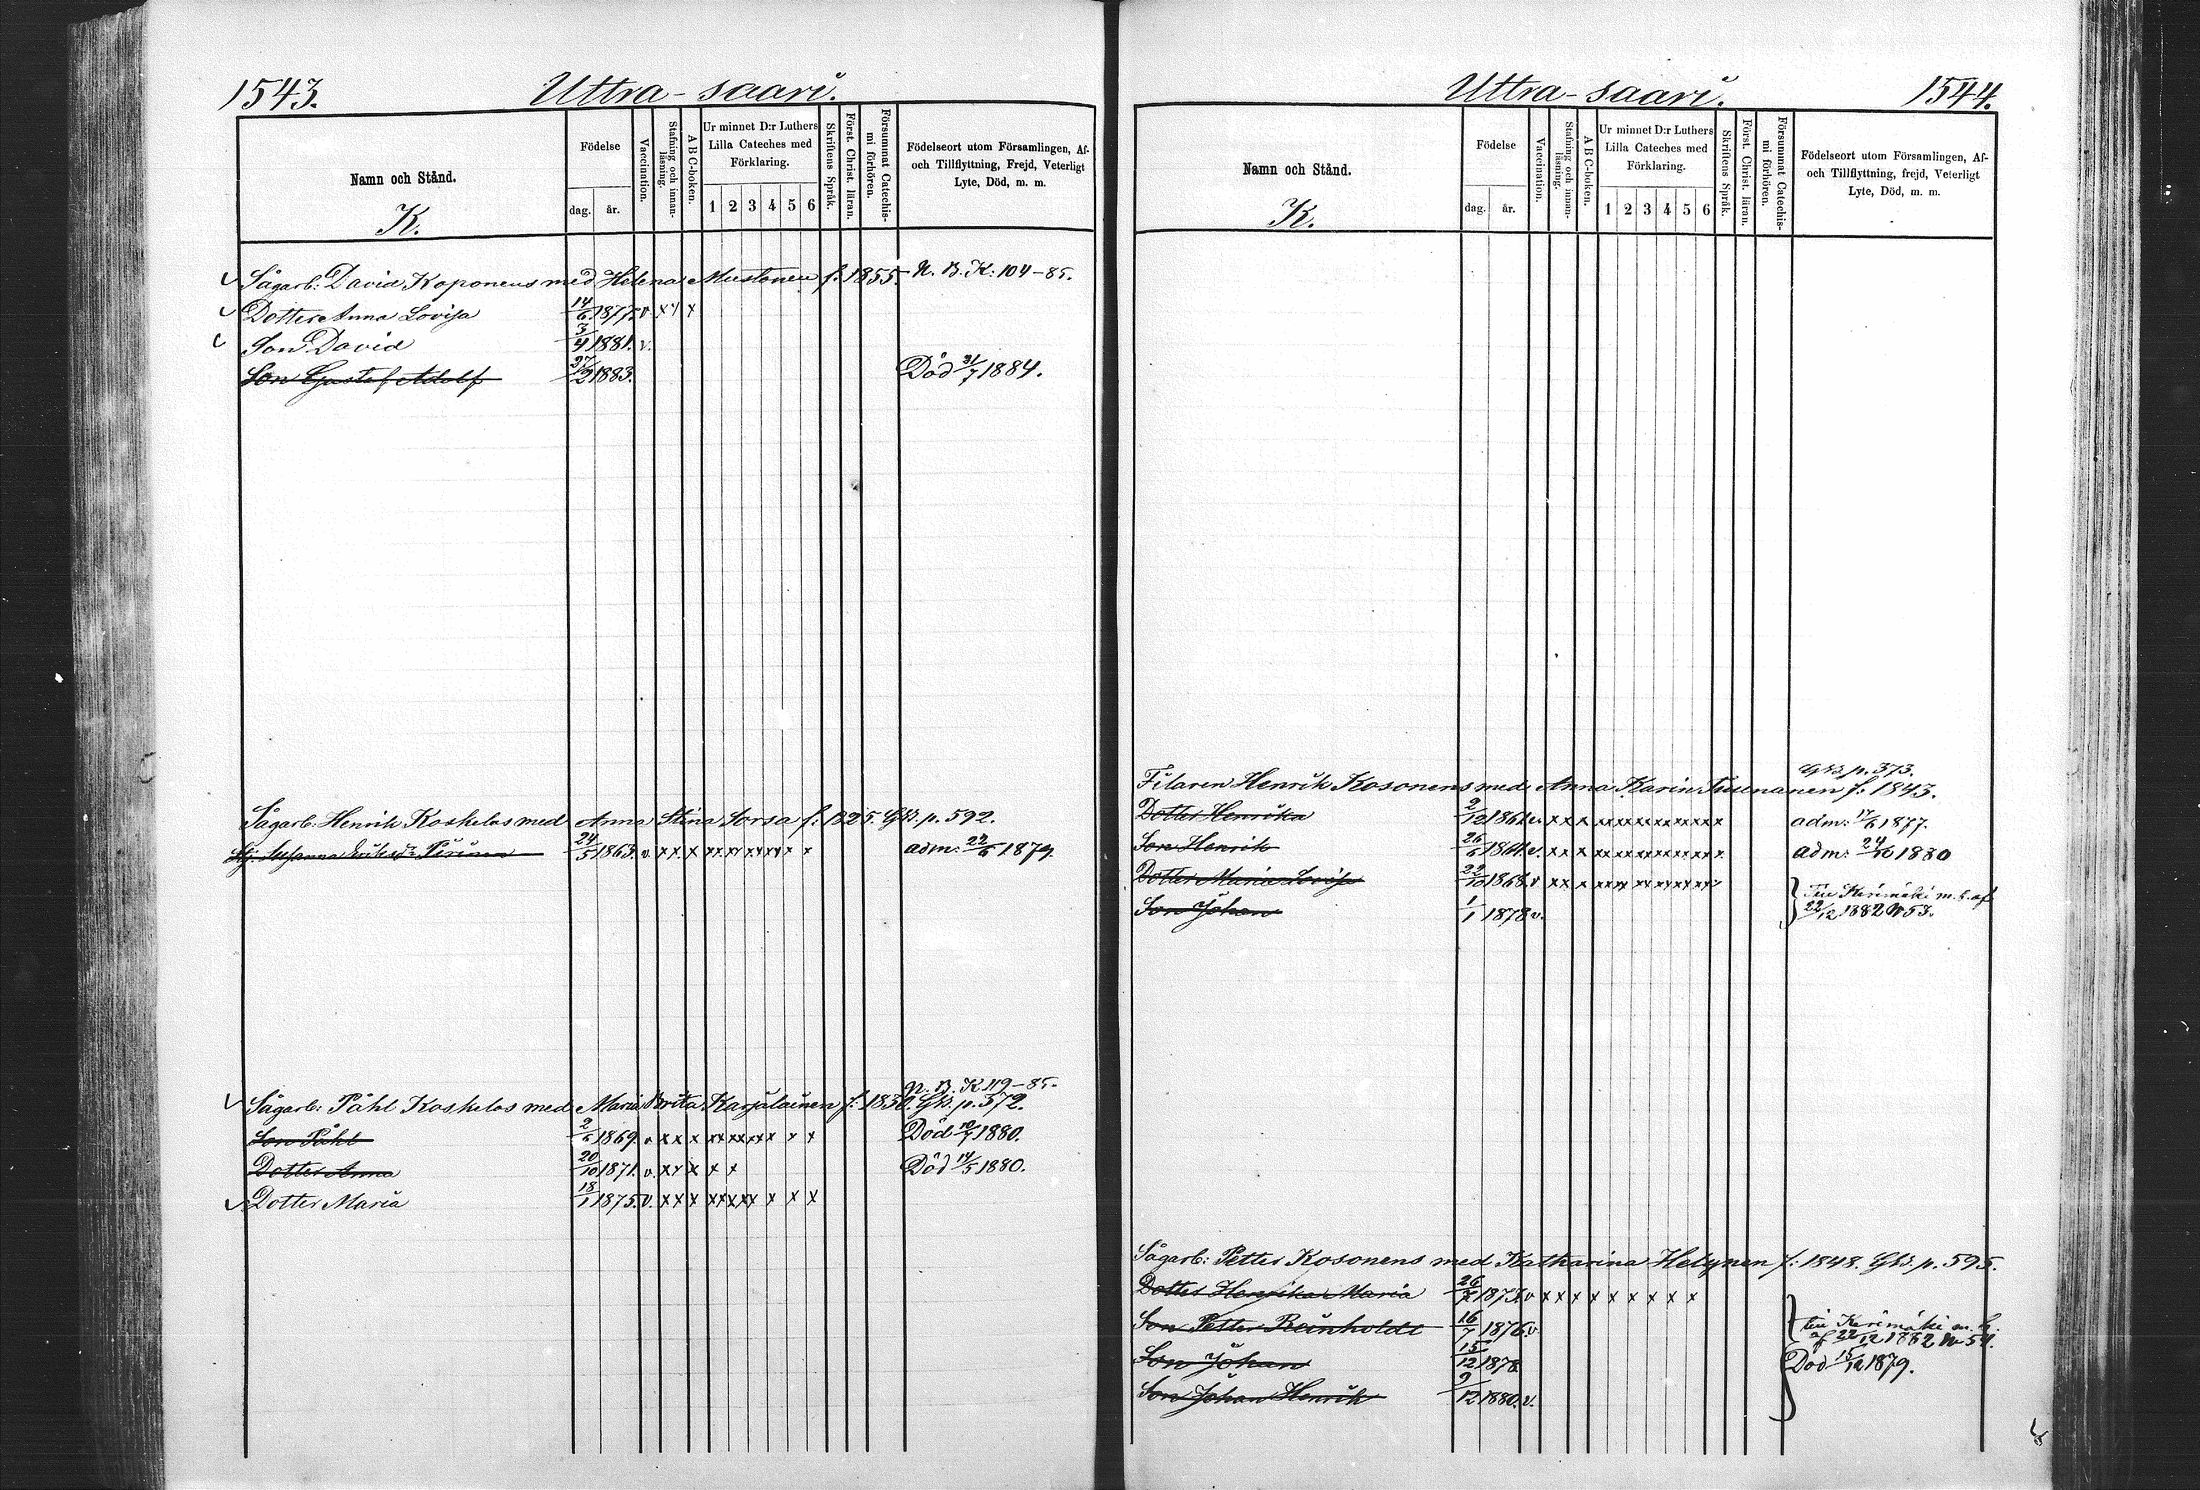 1543.
Uttra-saari.
Namn och Stånd.
K.
Födelse
dag. år.
Vaccination.
Stafning och innanläsning.
A B C-boken.
Ur minnet D:r Luthers
Lilla Cateches med
Förklaring.
1 2 3 4 5 6
Skriftens Språk.
Först. Christ. läran.
Försummat Catechismi förhören.
Födelseort utom Församlingen, Af-
och Tillflyttning, Frejd, Veterligt
Lyte, Död, m. m.
Sågarb: David Koponens med Helena Mustonen f: 1855. N. B. K: 104-85.
Dotter Anna Lovisa 14/6 1877. v x x x
Son David 3/4 1881. v.
Son Gustaf Adolf 27/2 1883. Död 31/7 1884.
Sågarb: Henrik Koskelos med Anna Stina Sorsa f: 1825. Gb. p. 592.
Susanna Piriinen 24/5 1863. v. xx. x xx xx xx xx x x adm: 22/6 1879.
N. B. K 119-85.
Sågarb: Påhl Koskelos med Maria Brita Karjalainen f: 1830. Gb. p. 372.
Son Påhl 2/6 1869. v x x x xx xx xx x x x Död 10/7 1880.
Dotter Anna 20/10 1871. v. x x x x x Död 14/5 1880.
Dotter Maria 18/1 1875. v. x x x xx xx x x x x
Uttra-saari.
1544.
Namn och Stånd.
K.
Födelse
dag. år.
Vaccination.
Stafning och innanläsning.
A B C-boken.
Ur minnet D:r Luthers
Lilla Cateches med
Förklaring.
1 2 3 4 5 6
Skriftens Språk.
Först. Christ. läran.
Försummat Catechismi förhören.
Födelseort utom Församlingen, Af-
och Tillflyttning, frejd, Veterligt
Lyte, Död, m. m.
Gb. p. 373.
Filaren Henrik Kosonens med Anna Karin Tuunanen f: 1843.
Dotter Henrika 2/12 1861. v. x x x xx xx xx xx xx x adm: 17/6 1877.
Son Henrik 26/6 1864. v. x x x xx xx xx xx xx x adm: 24/6 1880
Dotter Maria Lovisa 22/10 1868. v x x x xx xx xx xx xx
Till Kerimäki m. b. af
Son Johan 1/1 1878 v. 22/12 1882 N 53.
Sågarb: Petter Kosonens med Katharina Helynen f: 1848. Gb. p. 595.
Dotter Henrika Maria 26/7 1873. v x x x x x x x x x
Son Petter Reinholdt 16/7 1876. v. till Kerimäki m. b.
af 22/12 1882 N 54.
Son Johan 15/12 1878 Död 15/12 1879.
Son Johan Henrik 9/12 1880. v.